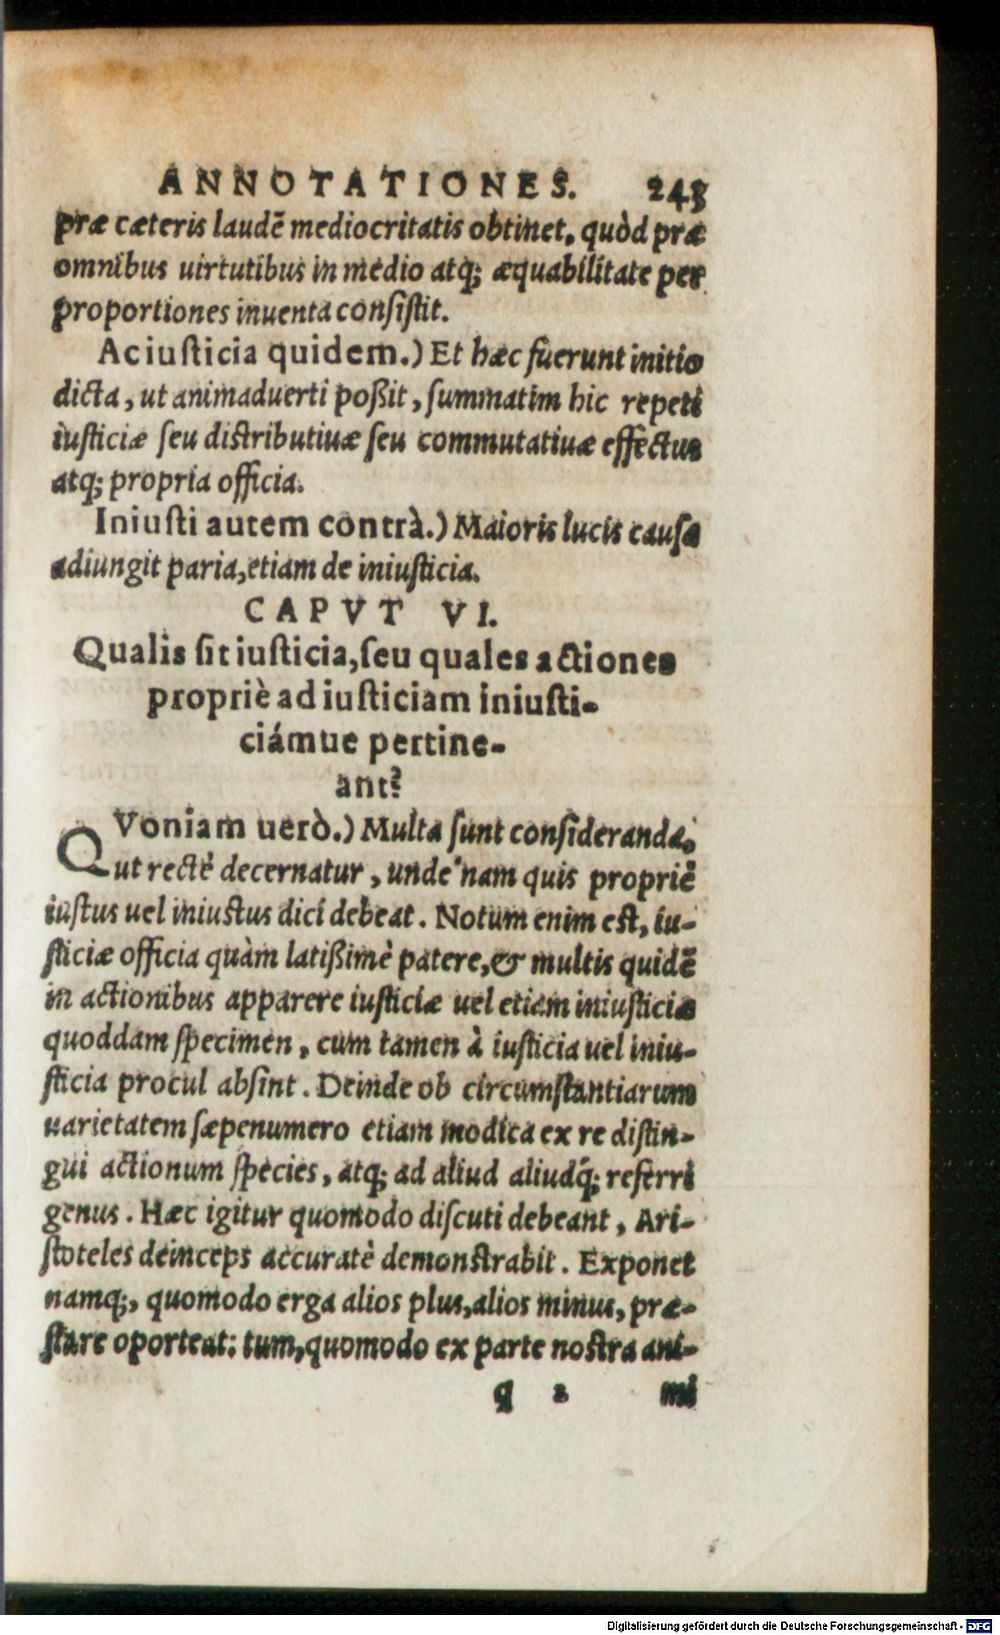 ANNOTATIONES. 243
præ cæteris laudē mediocritatis obtinet, quòd præ
omnibus uirtutibus in medio atq; æquabilitate per
proportiones inuenta consistit.
Ac iusticia quidem.) Et hæc fuerunt initio
dicta, ut animaduerti poßit, summatim hic repeti
iusticiæ seu distributiuæ seu commutatiuæ effectus
atq; propria officia.
Iniusti autem contrà.) Maioris lucis causa
adiungit paria, etiam de iniusticia.
CAPVT VI.
Qualis sit iusticia, seu quales actiones
propriè ad iusticiam iniusti-
ciámue pertine-
ant?
QVoniam uerò.) Multa sunt consideranda,
ut rectè decernatur, unde nam quis propriè
iustus uel iniustus dici debeat. Notum enim est, iu-
sticiæ officia quàm latißimè patere, & multis quidē
in actionibus apparere iusticiæ uel etiam iniusticiæ
quoddam specimen, cum tamen à iusticia uel iniu-
sticia procul absint. Deinde ob circumstantiarum
uarietatem sæpenumero etiam modica ex re distin-
gui actionum species, atq; ad aliud aliudq́; referri
genus. Hæc igitur quomodo discuti debeant, Ari-
stoteles deinceps accuratè demonstrabit. Exponet
namq;, quomodo erga alios plus, alios minus, præ-
stare oporteat: tum, quomodo ex parte nostra ani-
q 2 mi
Digitalisierung gefördert durch die Deutsche Forschungsgemeinschaft - DFG